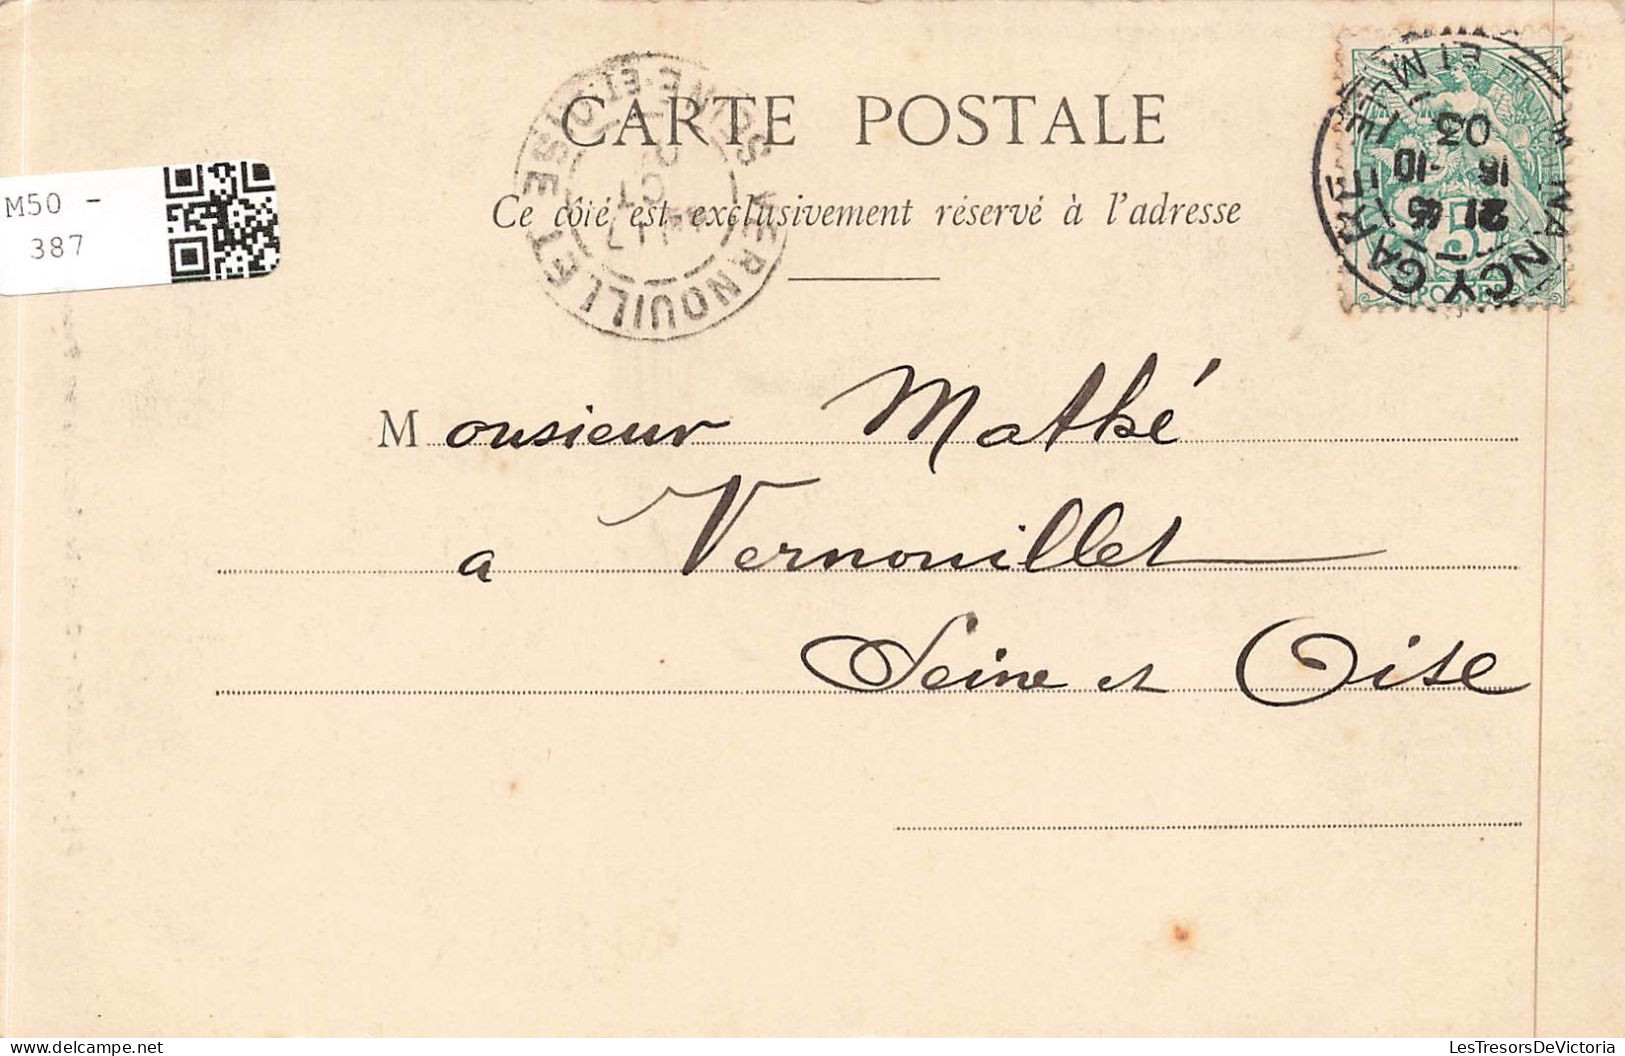 CARTE POSTALE
Ce côté est exclusivement réservé à l'adresse
M50 -
387
VERNOUILLET
SEINE-ET-OISE
OCT
NANCY GARE
MEURTHE ET MLLE
21
-10
03
5
POSTES
Monsieur Mathé
a Vernouillet
Seine et Oise
LesTresorsDeVictoria